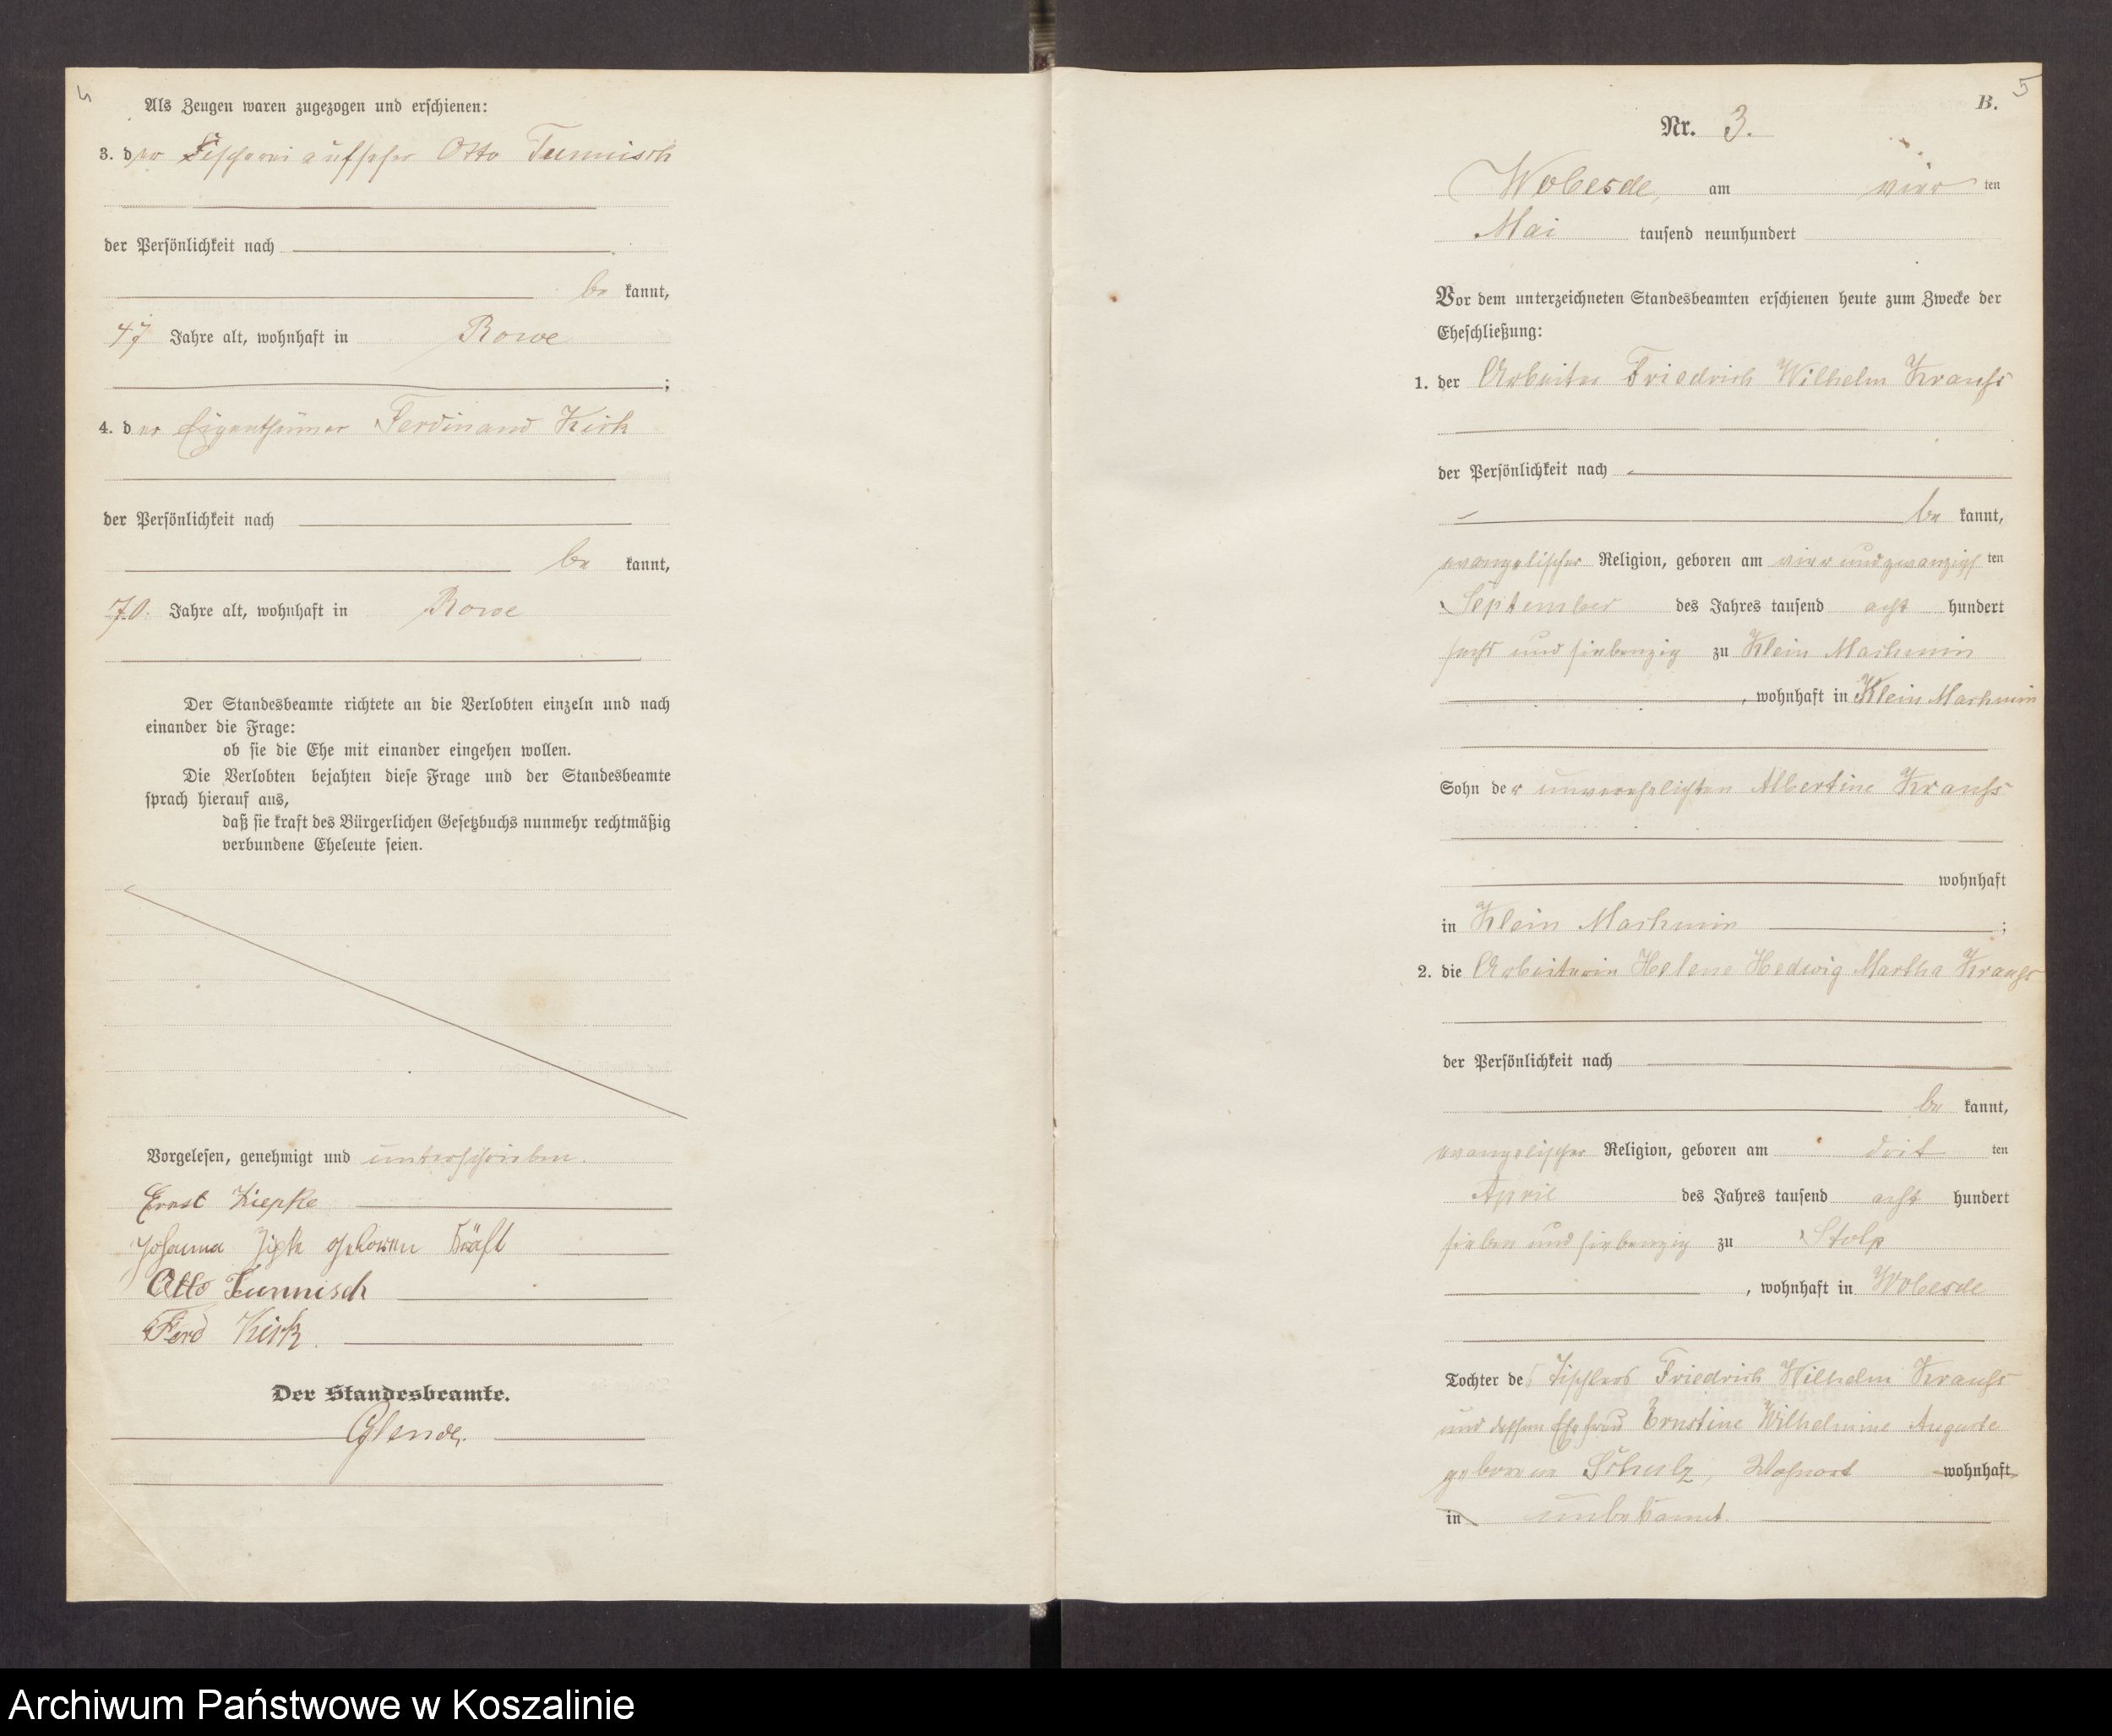 4
Als Zeugen waren zugezogen und erschienen:
3. der Fischereiaufseher Otto Tunnisch
der Persönlichkeit nach
be kannt,
47 Jahre alt, wohnhaft in Rowe
;
4. der Eigenthümer Ferdinand Kirk
der Persönlichkeit nach
be kannt,
70 Jahre alt, wohnhaft in Rowe
Der Standesbeamte richtete an die Verlobten einzeln und nach
einander die Frage:
ob sie die Ehe mit einander eingehen wollen.
Die Verlobten bejahten diese Frage und der Standesbeamte
sprach hierauf aus,
daß sie kraft des Bürgerlichen Gesetzbuchs nunmehr rechtmäßig
verbundene Eheleute seien.
Vorgelesen, genehmigt und unterschrieben.
Ernst
Johanna geborenen
Otto Tunnisch
Ferd Kirk.
Der Standesbeamte.
Glende.
5
B.
Nr. 3.
Wobesde, am vier ten
Mai tausend neunhundert
Vor dem unterzeichneten Standesbeamten erschienen heute zum Zwecke der
Eheschließung:
1. der Arbeiter Friedrich Wilhelm Krauss
der Persönlichkeit nach
be kannt,
evangelischer Religion, geboren am vier und zwanzigs ten
September des Jahres tausend acht hundert
sechs und siebenzig zu Klein Machmin
, wohnhaft in Klein Machmin
Sohn der unverehelichten Albertine Krauss
wohnhaft
in Klein Machmin ;
2. die Arbeiterin Helene Hedwig Martha Krauss
der Persönlichkeit nach
be kannt,
evangelischer Religion, geboren am drit ten
April des Jahres tausend acht hundert
sieben und siebenzig zu Stolp
, wohnhaft in Wobesde
Tochter des Tischlers Friedrich Wilhelm Krauss
und dessen Ehefrau Ernstine Wilhelmine Auguste
geborenen Schulz, Wohnort wohnhaft
in unbekannt.
Archiwum Państwowe w Koszalinie